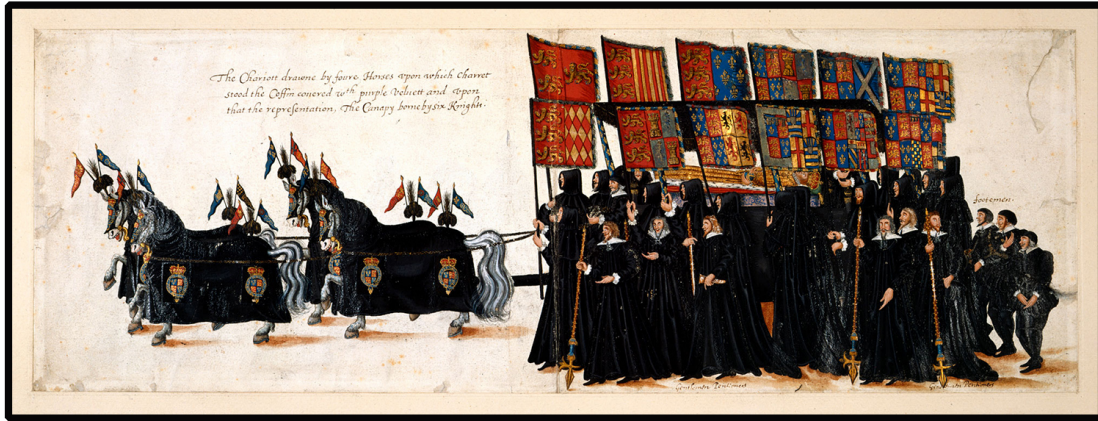 The Chariott drawne by foure Horses vpon which Charret
stood the Coffin couered wth purple Veluett and vpon
that the representation, The Canopy borne by six Knights.
footemen.
Gentlemen Pentioners
Gentlemen Pentioners